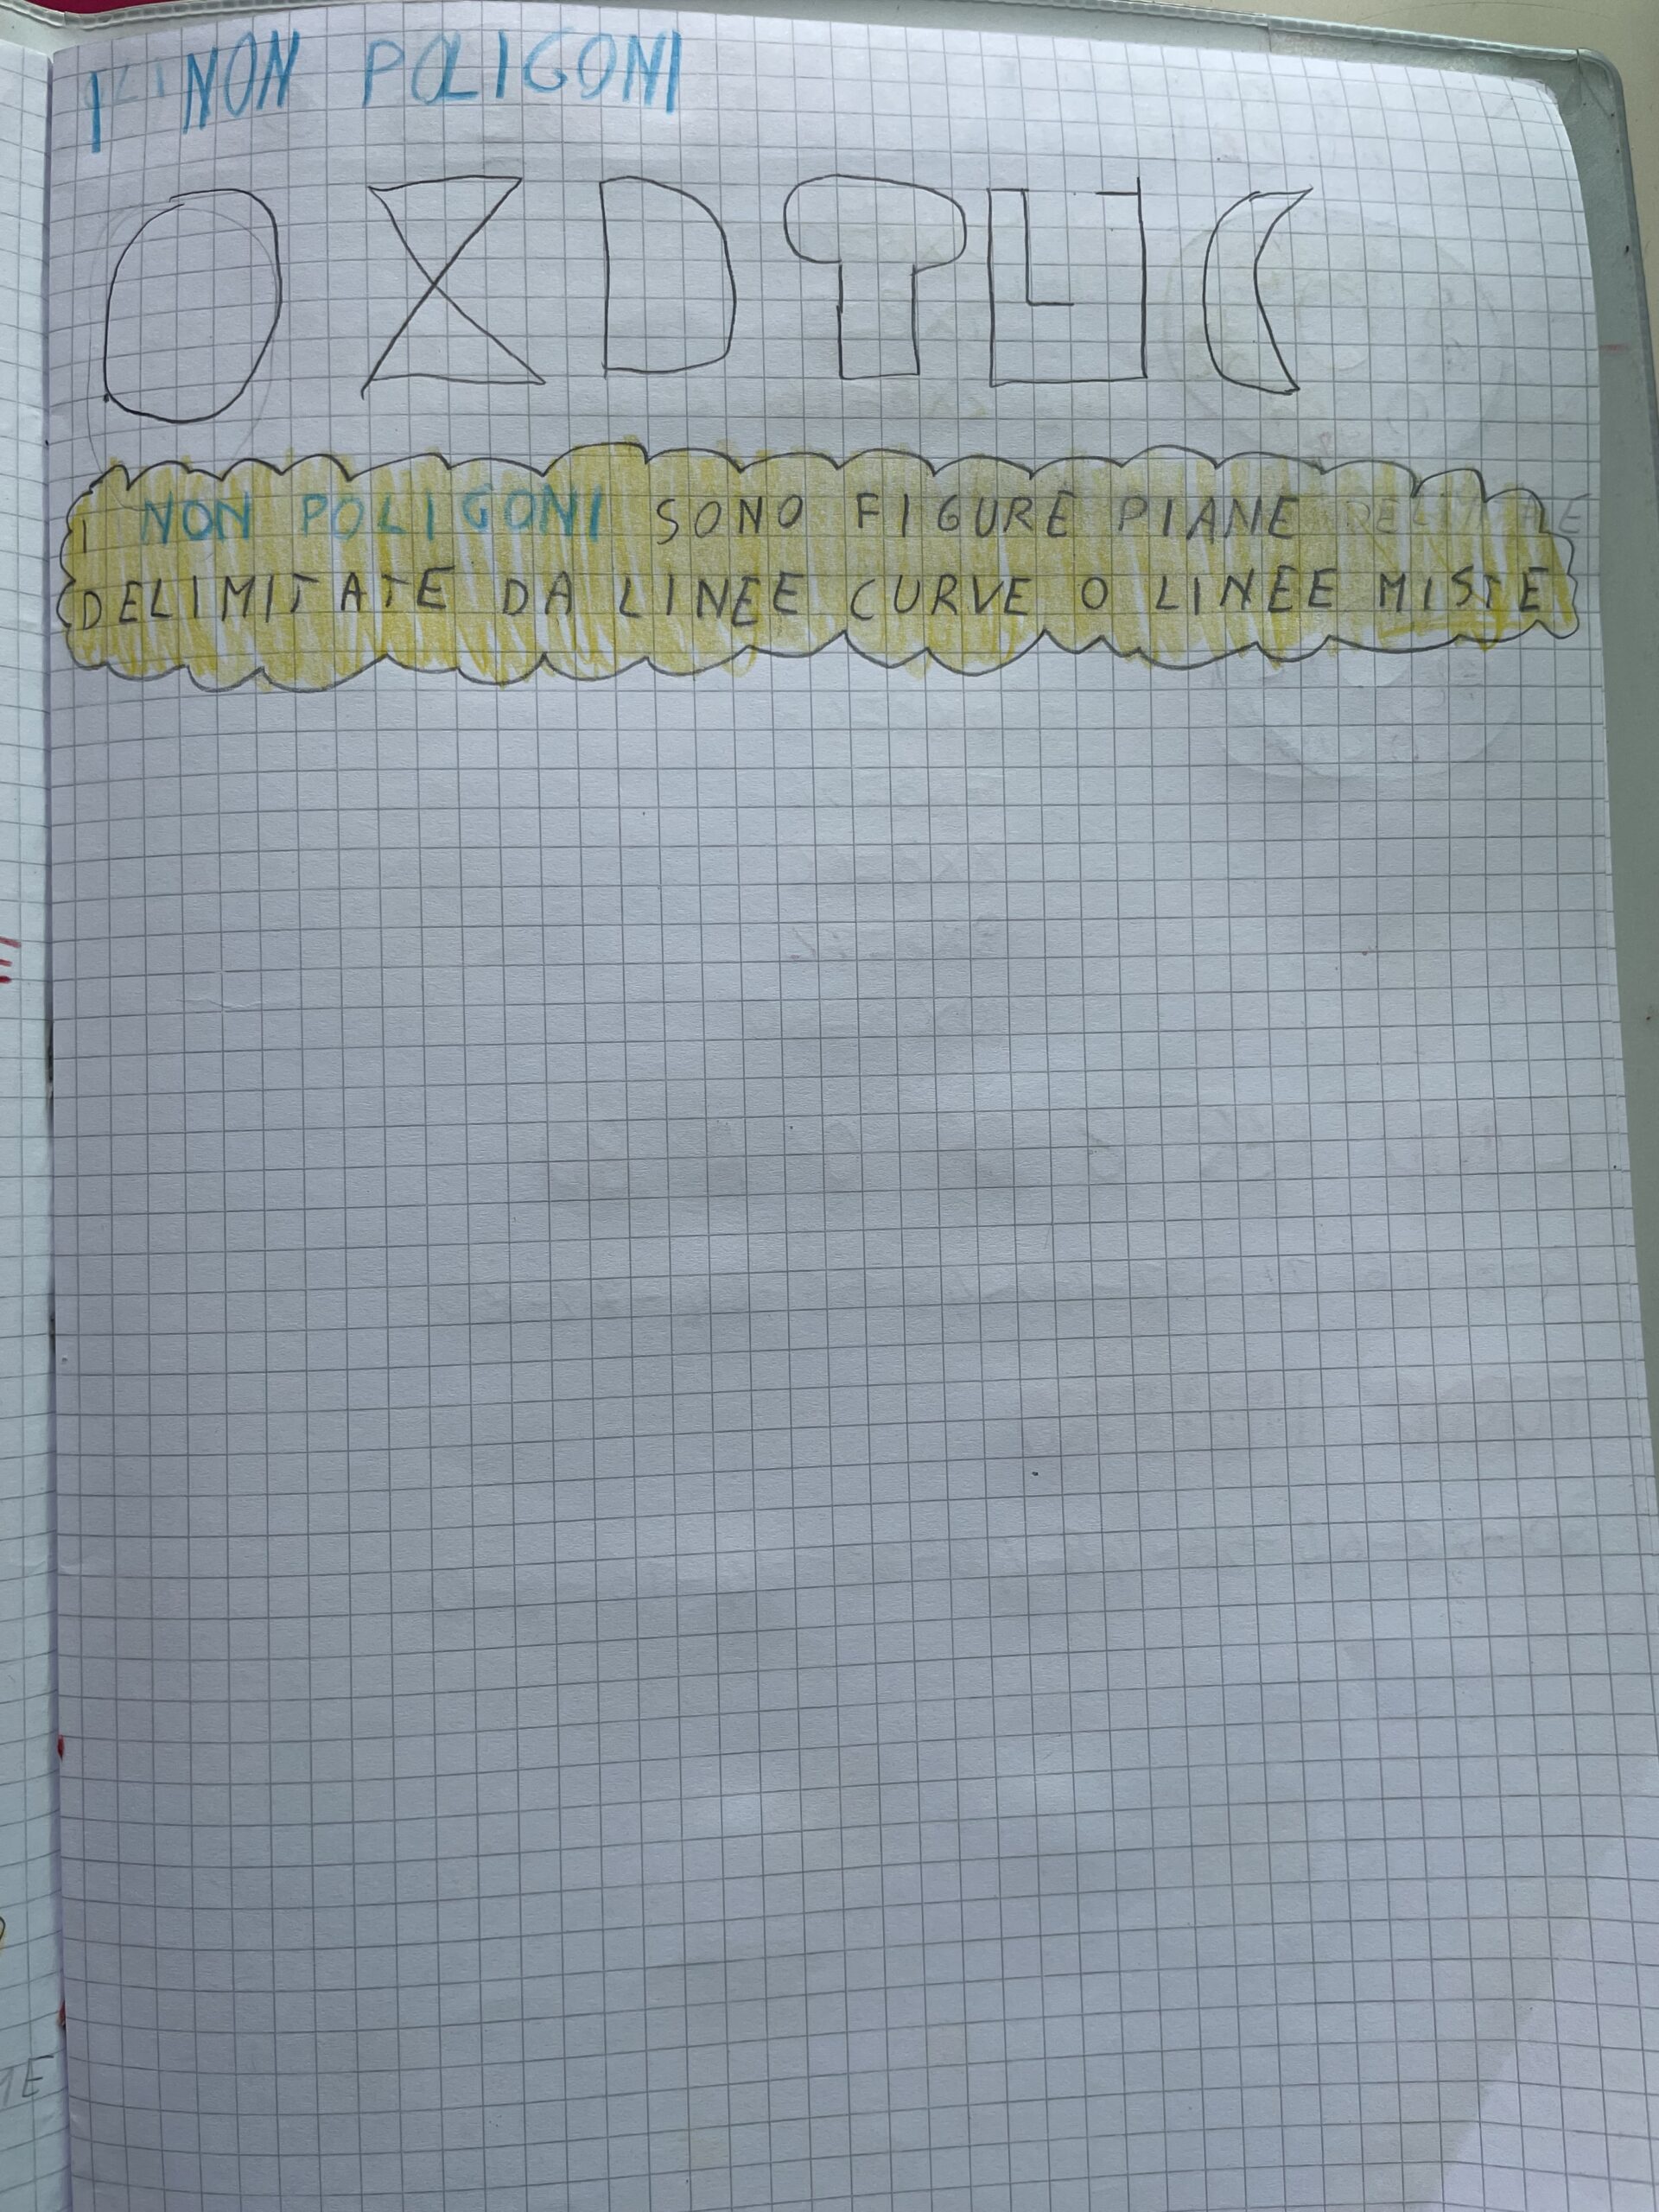 I NON POLIGONI
I NON POLIGONI SONO FIGURE PIANE
DELIMITATE DA LINEE CURVE O LINEE MISTE